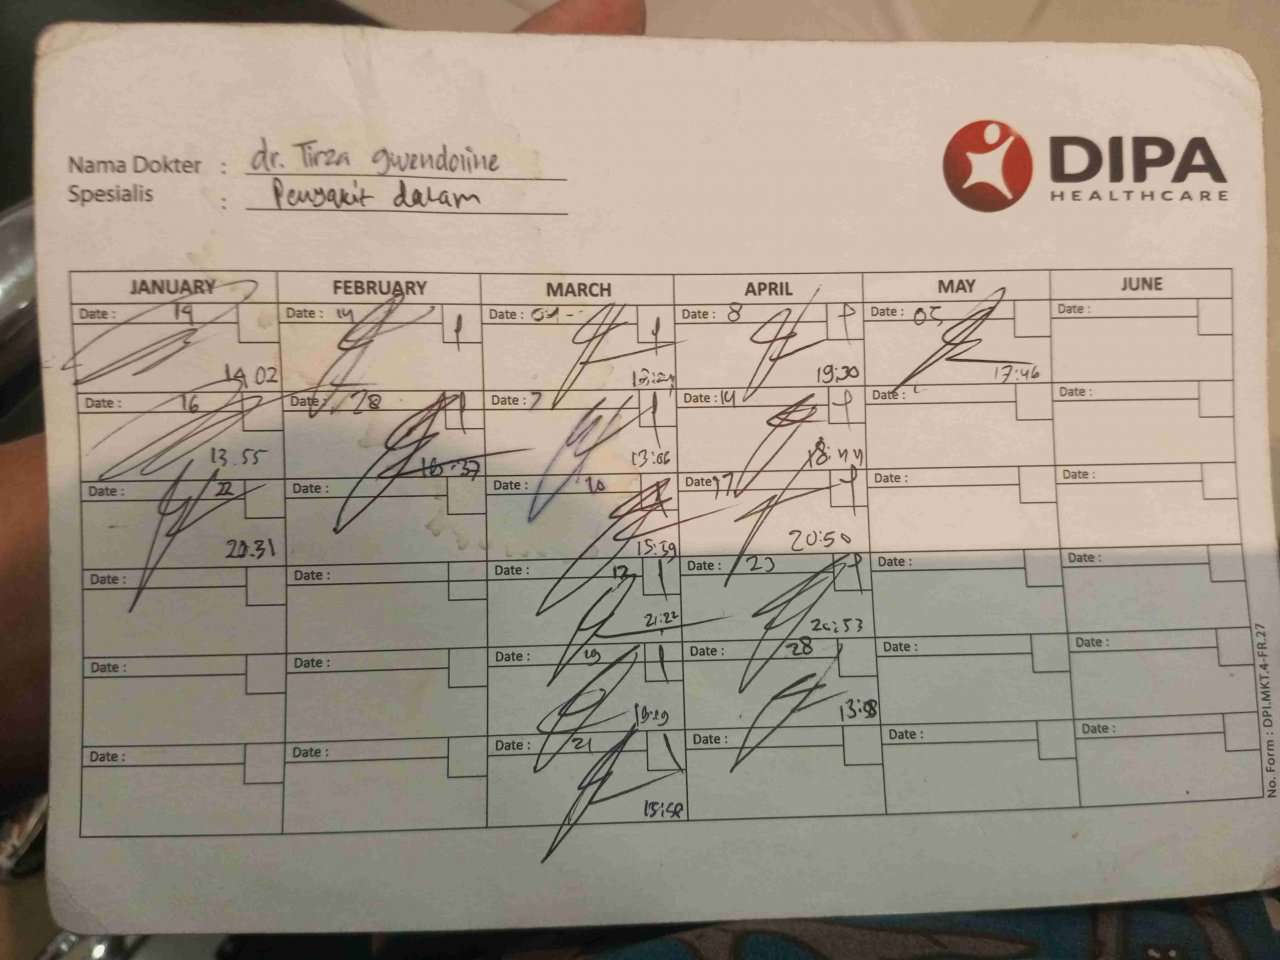 Nama Dokter : dr. Tirza gwendoline
Spesialis : Penyakit dalam
DIPA
HEALTHCARE
JANUARY FEBRUARY MARCH APRIL MAY JUNE
Date : 14 Date : 14 Date : 04 Date : 8 Date : 05 Date :
14 02 19:30 17:46
Date : 16 Date : 28 Date : 7 Date : 14 Date : Date :
13.55 18:37 13:06 18:44
Date : 22 Date : Date : 10 Date : 17 Date : Date :
20.31 15:39 20:50
Date : Date : Date : 13 Date : 23 Date : Date :
21:22 20:53
Date : Date : Date : 19 Date : 28 Date : Date :
Date : Date : Date : 21 Date : Date : Date :
15:58
No. Form : DPI.MKT.4-FR.27